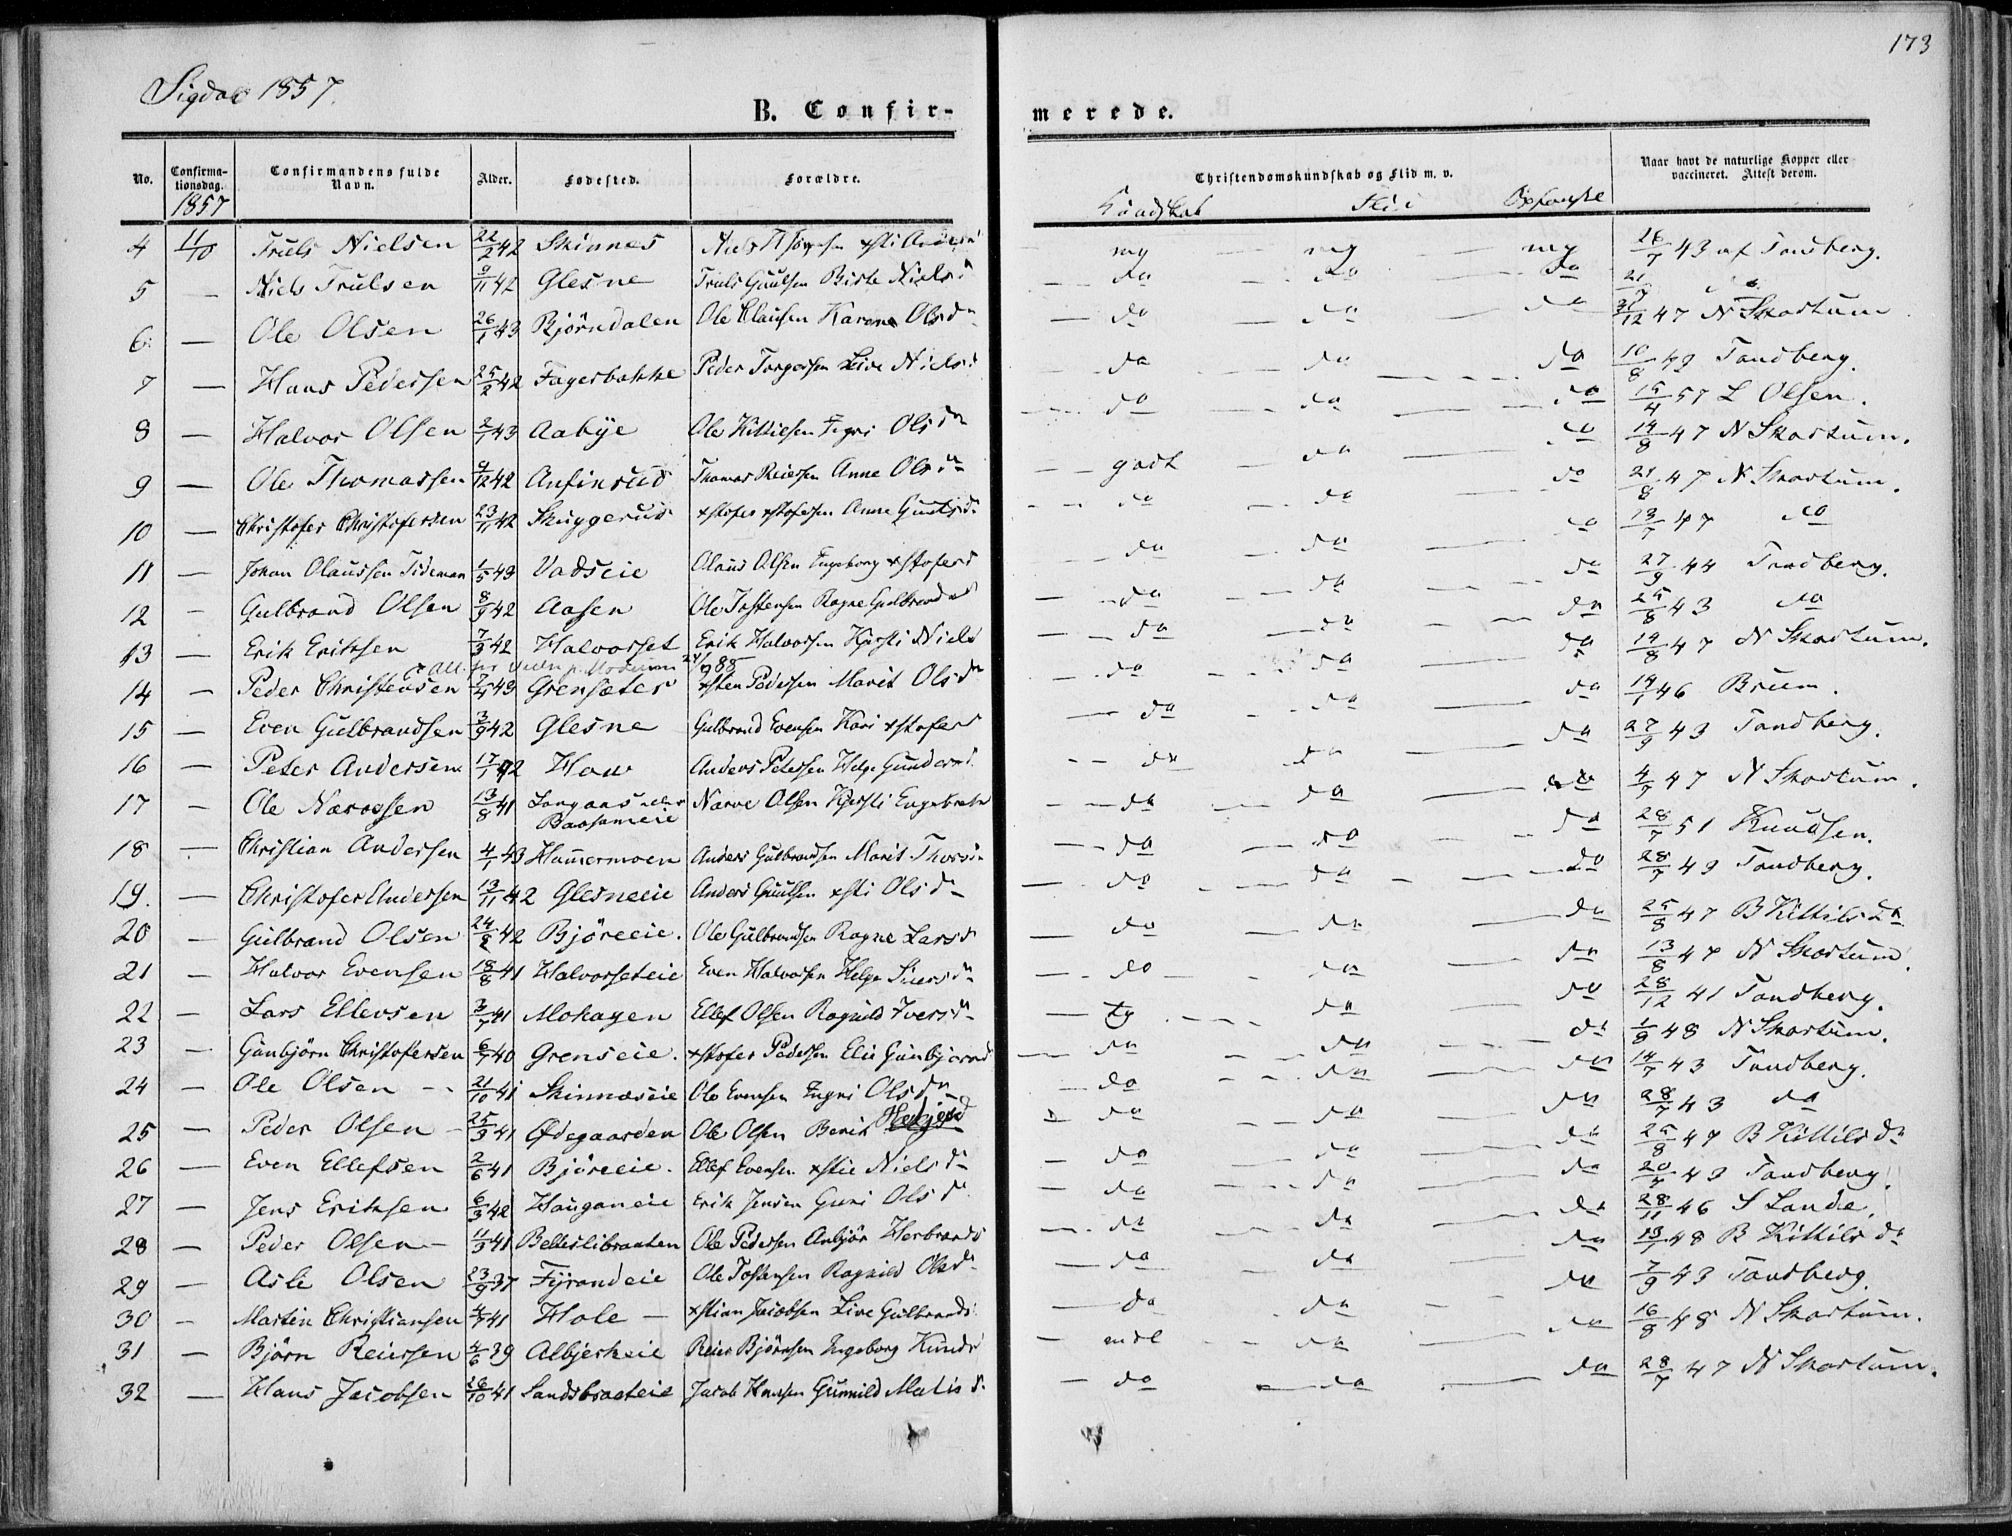 173
Sigdal 1857.
B. Confir-
merede.
No.
Confirma-
tionsdag.
1857
Confirmandens fulde
Navn.
Alder.
Fødested.
Forældre.
Christendomskundskab og Flid m. v.
Kundskab Flid Opførsel
Naar havt de naturlige Kopper eller
vaccineret. Attest derom.
4 11/10 Truls Nielsen 22/2 42 Skinnes mg mg mg 26/7 43 af Tandberg.
5 — Niels Trulsen 9/11 42 Glesne Truls Guulsen Birte Nielsd da da da 21/7
6 — Ole Olsen 26/1 43 Bjørndalen Ole Clausen Karen Olsdn da da da 3/12 47 N Skartum
7 — Hans Pedersen 25/2 42 Fagerbakke Peder Torgersen Live Nielsd da da da 10/8 49 Tandberg.
8 — Halvor Olsen 2/1 43 Aabye Ole Kittilsen Ingri Olsdn da da da 15/4 57 L Olsen.
9 — Ole Thomassen 9/12 42 Anfinrud Thomas Reiersen Anne Olsdn godt da da 14/8 47 N Skartum.
10 — Christofer Christofersen 23/11 42 Skuggerud xstofer xstofersen Anne Gustsd. da da da 21/8 47 N Skartum.
11 — Johan Olaussen Tideman 1/5 43 Vadseie Olaus Olsen Ingeborg xstofersd da da da 13/7 47 da
12 — Gulbrand Olsen 8/9 42 Aasen Ole Tostensen Ragne Gulbrandsd da da da 27/9 44 Tandberg.
13 — Erik Eriksen 7/3 42 Halvorset Erik Halvorsen Kjersti Niels da da da 25/8 43 da
14 — Peder Christensen 7/4 43 Grensæter xsten Pedersen Marit Olsdn da da da 14/8 47 N Skartum.
15 — Even Gulbrandsen 3/9 42 Glesne Gulbrand Evensen Kari xstofersd da da da 14/1 46 Bruem.
16 — Peter Andersen 17/1 42 Hou Anders Petersen Helge Gundersd. da da da 27/9 43 Tandberg.
17 — Ole Narvesen 13/8 41 Langaas eller Narve Olsen Kjersti Engebretsd da da da 4/7 47 N Skartum.
Baasameie
18 — Christian Andersen 4/1 43 Hammermoen Anders Gulbrandsen Marit Thorsdn da da da 28/7 51 Knudsen.
19. — Christofer Andersen 13/11 42 Glesneeie Anders Guulsen xsti Olsdn da da da 28/7 49 Tandberg.
20 — Gulbrand Olsen 24/8 42 Bjøreeie. Ole Gulbrandsen Ragne Larsd da da da 25/8 47 B Kittilsdn
21 — Halvor Evensen 18/8 41 Halvorseteie Even Halvorsen Helge Siversdn do da da 13/8 47 N Skartum.
22 — Lars Ellevsen 3/7 41 Mohagen Ellef Olsen Ragnild Iversdn tg da da 28/12 41 Tandberg.
23 — Gunbjørn Christofersen 6/7 40 Grenseie. xstofer Pedersen Elie Gunbjørnsd da da da 1/9 48 N Skartum.
24 — Ole Olsen 21/10 41 Skinnaseie Ole Evensen Ingri Olsdn da da da 14/7 43 Tandberg.
25 — Peder Olsen 25/3 41 Ødegaarden Ole Olsen Berit da da da 28/7 43 da
26 — Even Ellefsen 2/6 41 Bjøreeie. Ellef Evensen xstie Nielsdn da da da 25/8 47 B Kittilsdn
27 — Jens Eriksen 6/3 42 Hauganeie Erik Jensen Guri Olsd. da da da 20/7 43 Tandberg.
28 — Peder Olsen 11/3 41 Belterlibraaten Ole Pedersen Anbjør Herbrandsd da da da 28/11 46 S Lande.
29 — Asle Olsen 23/9 37 Fyrandeie Ole Tostensen Ragnild Olsdn da da da 13/1 48 B Kittilsdn
30 — Martin Christiansen 4/7 41 Hole xstian Jacobsen Live Gulbrandsd. da da da 7/9 43 Tandberg.
31 — Bjørn Reiersen 4/6 39 Albjerkeie Reier Bjørnsen Ingeborg Knudsd maadl da da 16/8 48 N Skartum.
32 — Hans Jacobsen 26/10 41 Sandsbraateie Jacob Hansen Gunnild Matisd. da da da 28/7 47 N Skartum.